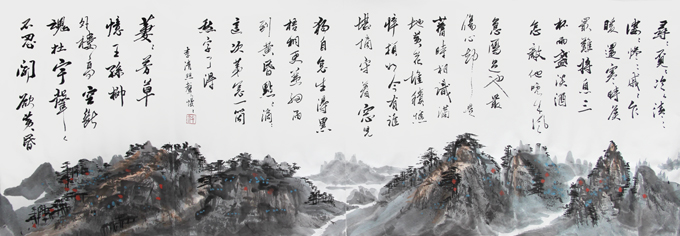 尋〻覓〻冷〻清〻
凄〻慘〻戚〻乍
暖還寒時候
最難將息三
杯兩盞淡酒
怎敵他晚來風
急雁過也最
傷心卻是
舊時相識滿
地黃花堆積憔
悴損如今有誰
堪摘守著窗
獨自怎生得黑
梧桐更兼細雨
到黃昏點〻滴〻
這次第怎一個
愁字了得
李清照聲〻慢
萋〻芳草
憶王孫柳
外樓高空斷
魂杜宇聲〻
不忍聞欲黃昏